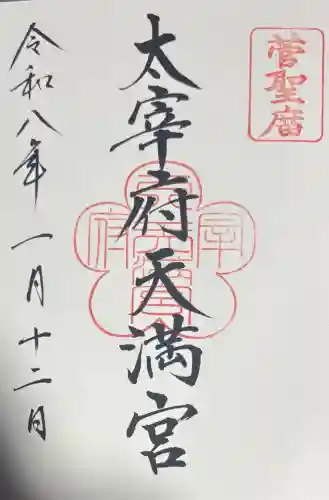 菅聖庿
太宰府天満宮
令和八年一月十二月